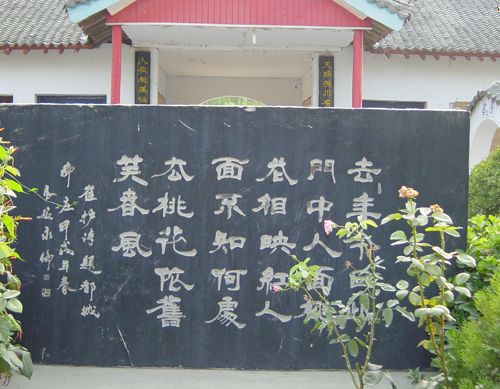 去年今日此
門中人面桃
花相映紅人
面不知何處
去桃花依舊
笑春風
崔护诗题都城
南庄甲戌年春